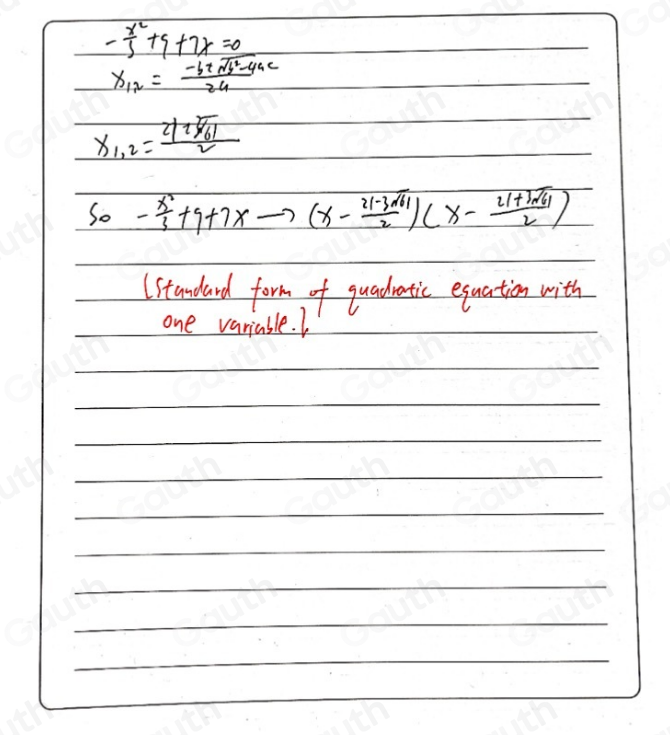 -x²/3 +9 +7x =0
x₁,₂ = (-b±√(b²-4ac))/2a
x₁,₂ = (21±3√61)/2
So -x²/3 +9+7x → (x - (21-3√61)/2)(x - (21+3√61)/2)
[Standard form of quadratic equation with
one variable.]